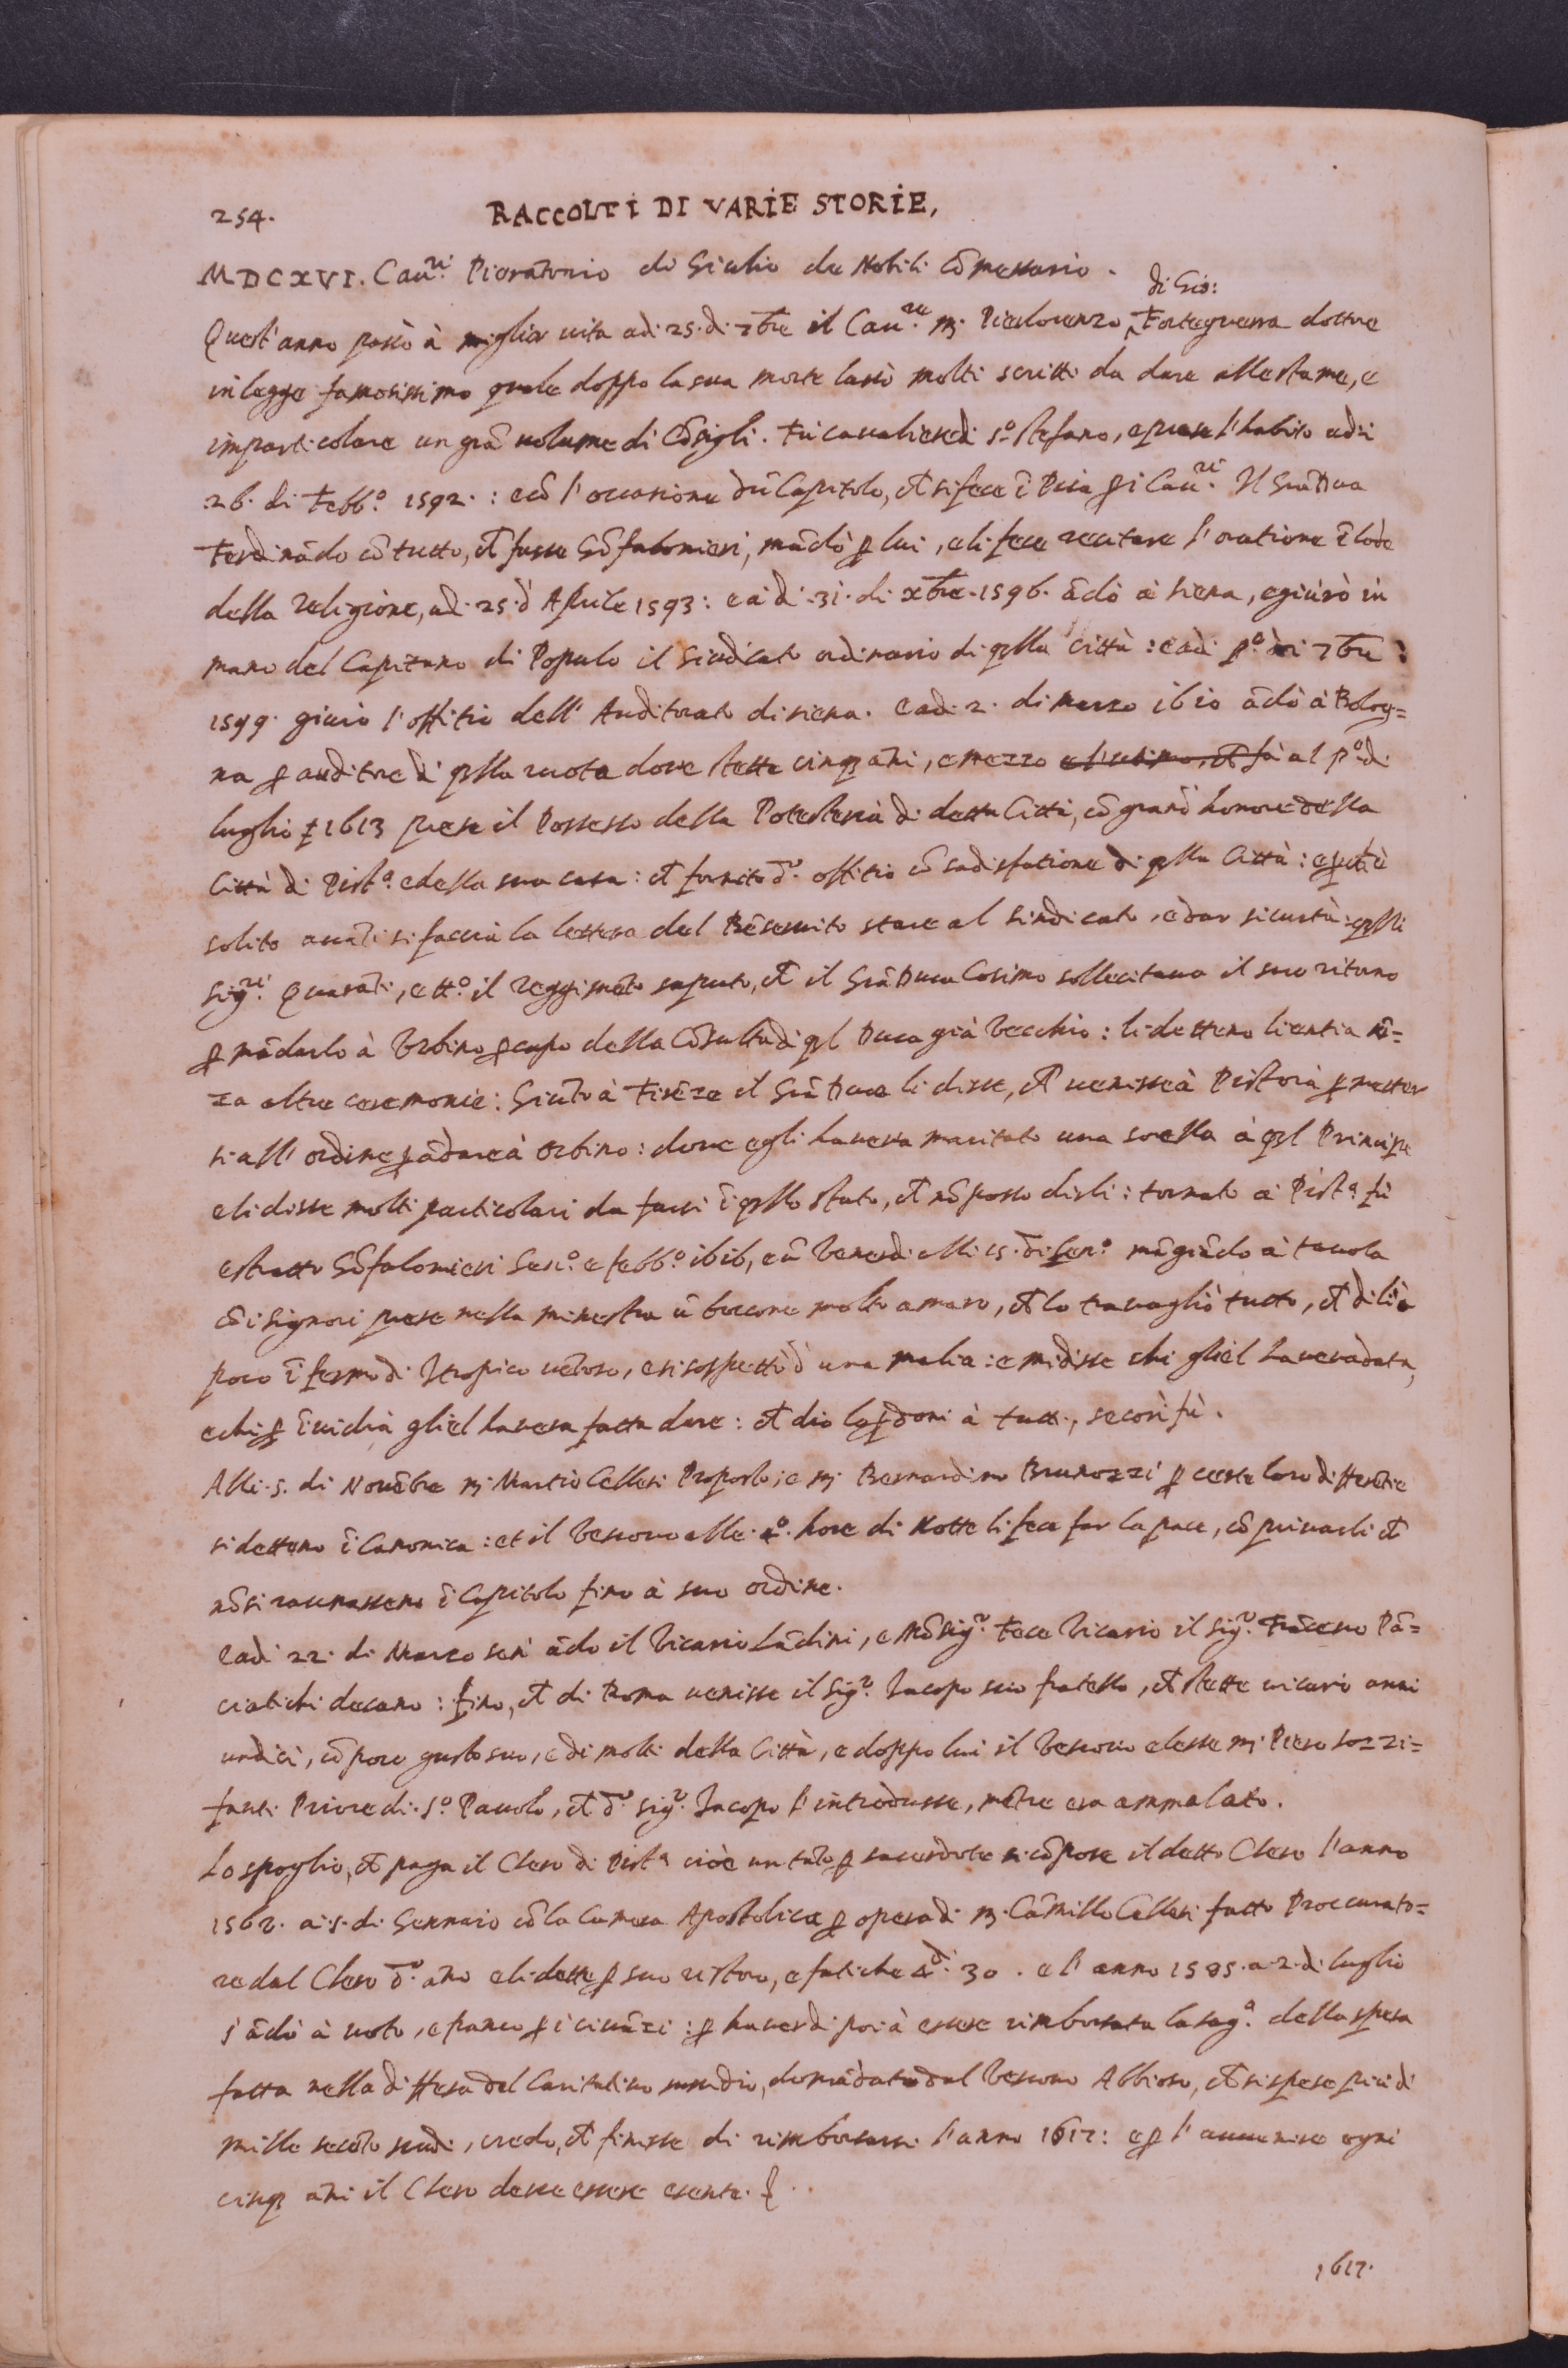 254. RACCOLTI DI VARIE STORIE,
MDCXVI. Cau.ri Pierantonio di Giulio de Nobili Cõmessario.
di Gio:
Quest'anno passò à miglior uita adi 25. di 7bre il Cau.re M. Pierlorenzo Forteguerra dottore
in legge famosissimo quale doppo la sua morte lassò molti scritti da dare alle stampe, e
imparticolare un grã uolume di Cõsigli. Fù caualiere di s.o stefano, e prese l'habito adi
26. di Febb.o 1592.: e cõ l'occasione dũ Capitolo, ch si fece ĩ Pisa ꝑ i Cau.ri Il Grã Duca
Ferdinãdo cõ tutto, ch fusse Gõfalonieri, mãdò ꝑ lui, e li fece recitare l'oratione ĩ lode
della religione, adi 25. d'Aprile 1593: e adi 31. di xbre. 1596. ãdò à siena, e giurò in
mano del Capitano di Populo il sindicato ordinario di qlla città: e adi p.o di 7bre:
1599. giurò l'offitio dell'Auditorato di siena. e adi 2. di marzo 1610 ãdò à Bolog=
na ꝑ auditore di qlla ruota doue stette cinq ãni, e mezzo al p.o di
luglio 1613 prese il Possesso della Potesteria di detta Città, cõ grand' honore della
Città di Pist.a e della sua casa: ch fornito d.o offitio cõ sadisfatione di qlla Città: e
solito auãti si faccia la lettera del Bẽseruito stare al sindicato, e dar sicurtà: qlli
sig.ri Quarãti, e tt.o il reggimẽto saputo, ch il Grã Duca Cosimo sollecitaua il suo ritorno
ꝑ mãdarlo à Vrbino ꝑ capo della Cõsulta di ql Duca già Vecchio: li dettero licentia sẽ=
za altre ceremonie: Giũto à Firẽze il Grã Duca li disse, ch uenisse à Pistoia ꝑ metter
si all'ordine ꝑ ãdare à Orbino: doue egli haueua maritato una sorella à ql Principe
e li disse molti particolari da farsi ĩ qllo stato, ch nõ posso dirli: tornato à Pist.a fù
estratto Gõfalonieri Gen.o e febb.o 1616, e ũ Venerdi alli 15. di Gen.o mãgiãdo à tauola
cõ i signori prese nella minestra ũ boccone molto amaro, ch lo trauagliò tutto, ch di lì à
poco ĩfermò di Itropico uẽtoso, e si sospettò d'una malia: e mi disse chi gliel haueua data,
e chi ꝑ ĩuidia gliel haueua fatta dare: ch dio lo ꝑdoni à tutti, se così fù.
Alli 5. di Nouẽbre M. Martio Cellesi Proposto; e M. Bernardino Brunozzi ꝑ certe loro differẽtie
si dettero ĩ Canonica: et il Vescouo alle 4.o hore di Notte li fece far la pace, cõ priuarli ch
nõ si raunassero ĩ Capitolo fino à suo ordine.
E adi 22. di Marzo sen' ãdo il Vicario Lãdini, e Mõsig.r Fece Vicario il sig.r Frãcesco Pã=
ciatichi decano: fino, ch di Roma uenisse il Sig.r Iacopo suo fratello, ch stette uicario anni
undici, cõ poco gusto suo, e di molti della Città, e doppo lui il Vescouo elesse M. Piero sozzi=
fanti Priore di s.o Pauolo, ch d.o sig.r Iacopo l'introdusse, mẽtre era ammalato.
Lo spoglio, ch paga il Clero di Pist.a cioè un tãto ꝑ sacerdote si cõpose il detto Clero l'anno
1562. a 5. di Gennaio cõ la Camera Apostolica ꝑ opera di M. Cãmillo Cellesi fatto Proccurato=
re dal Clero d.o ãno e li dette ꝑ suo ristoro, e fatiche 30. e l'anno 1585. a 2. di luglio
s'ãdò à uoto, e ꝑ i ciuãzi: ꝑ hauerdi poi à essere rimborsata la sag.a della spesa
fatta nella diffesa del Caritatiuo sussidio, domãdato dal Vescouo Abbioso, ch si spese più di
mille secẽto scudi, credo, ch finisse di rimborsarsi l'anno 1617: e ꝑ l'auuenire ogni
cinq ãni il Clero deue essere esente.
1617.